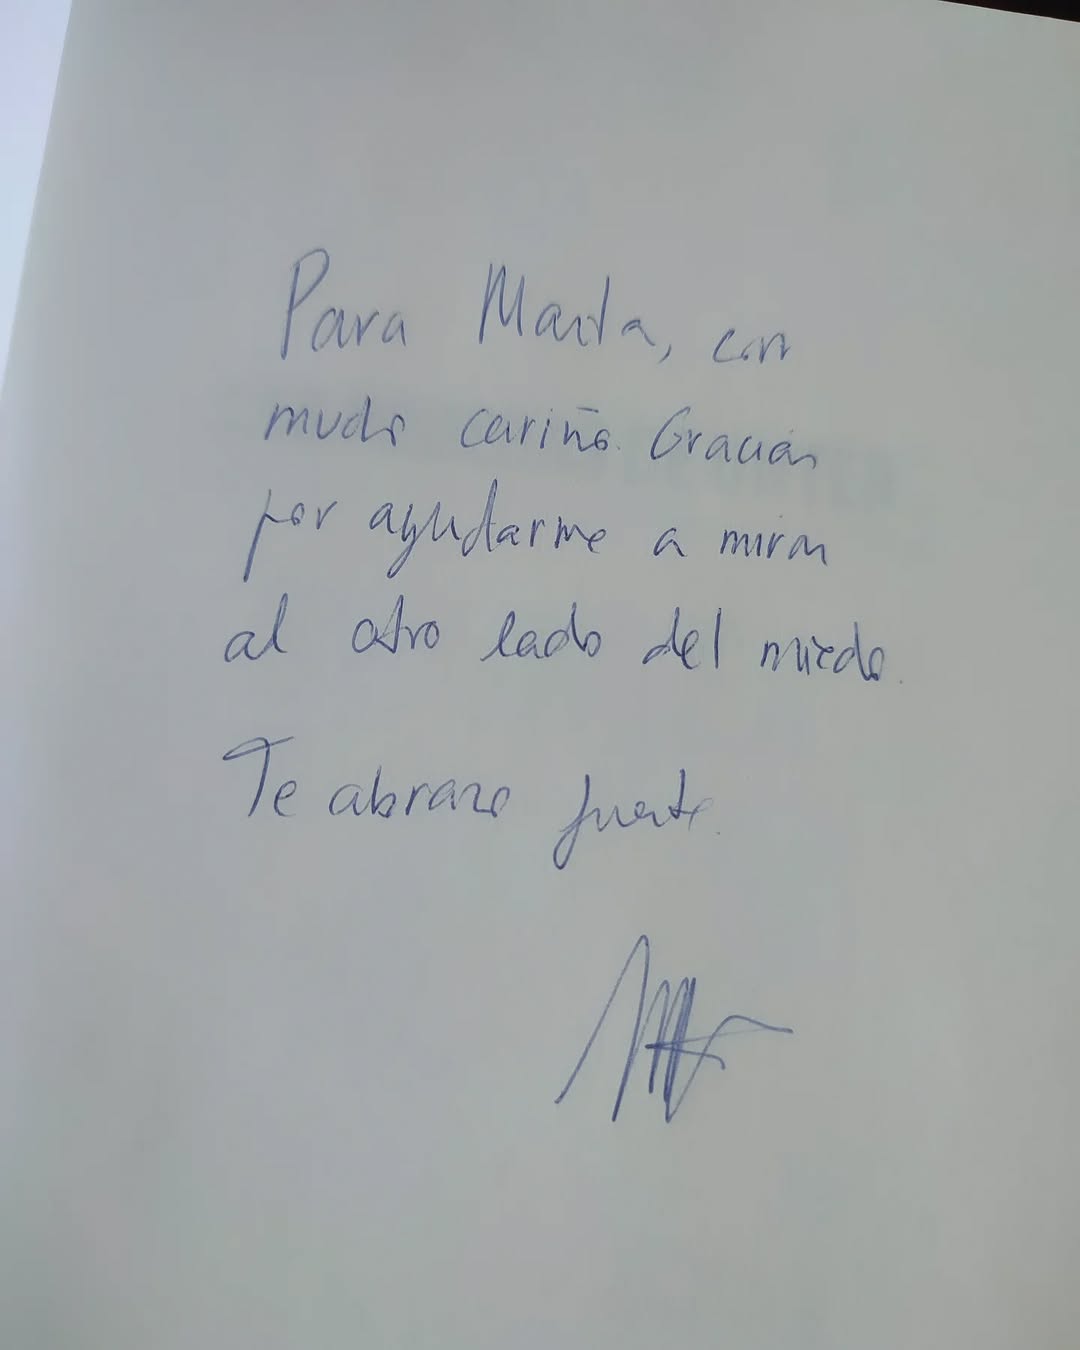 Para Marta, con
mucho cariño. Gracias
por ayudarme a mirar
al otro lado del miedo.
Te abrazo fuerte.